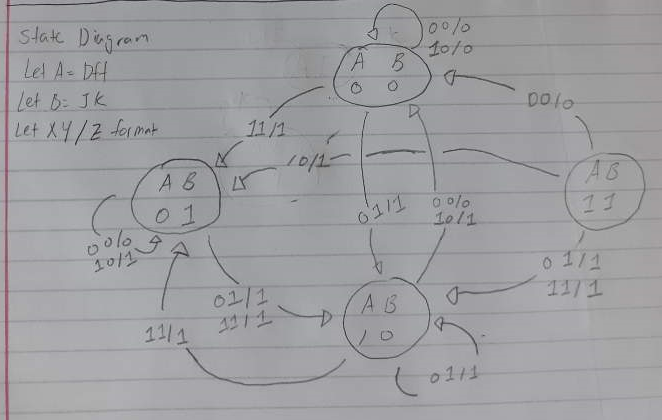 State Diagram
Let A = Dff
Let B = JK
Let XY/Z format
00/0
10/0
A B
0 0
00/0
11/1
10/1
A B
1 1
A B
0 1
01/1
00/0
10/1
00/0
10/1
01/1
11/1
01/1
11/1
A B
1 0
11/1
01/1